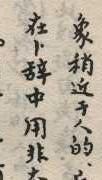 象稍近于人的,
在卜辞中用非